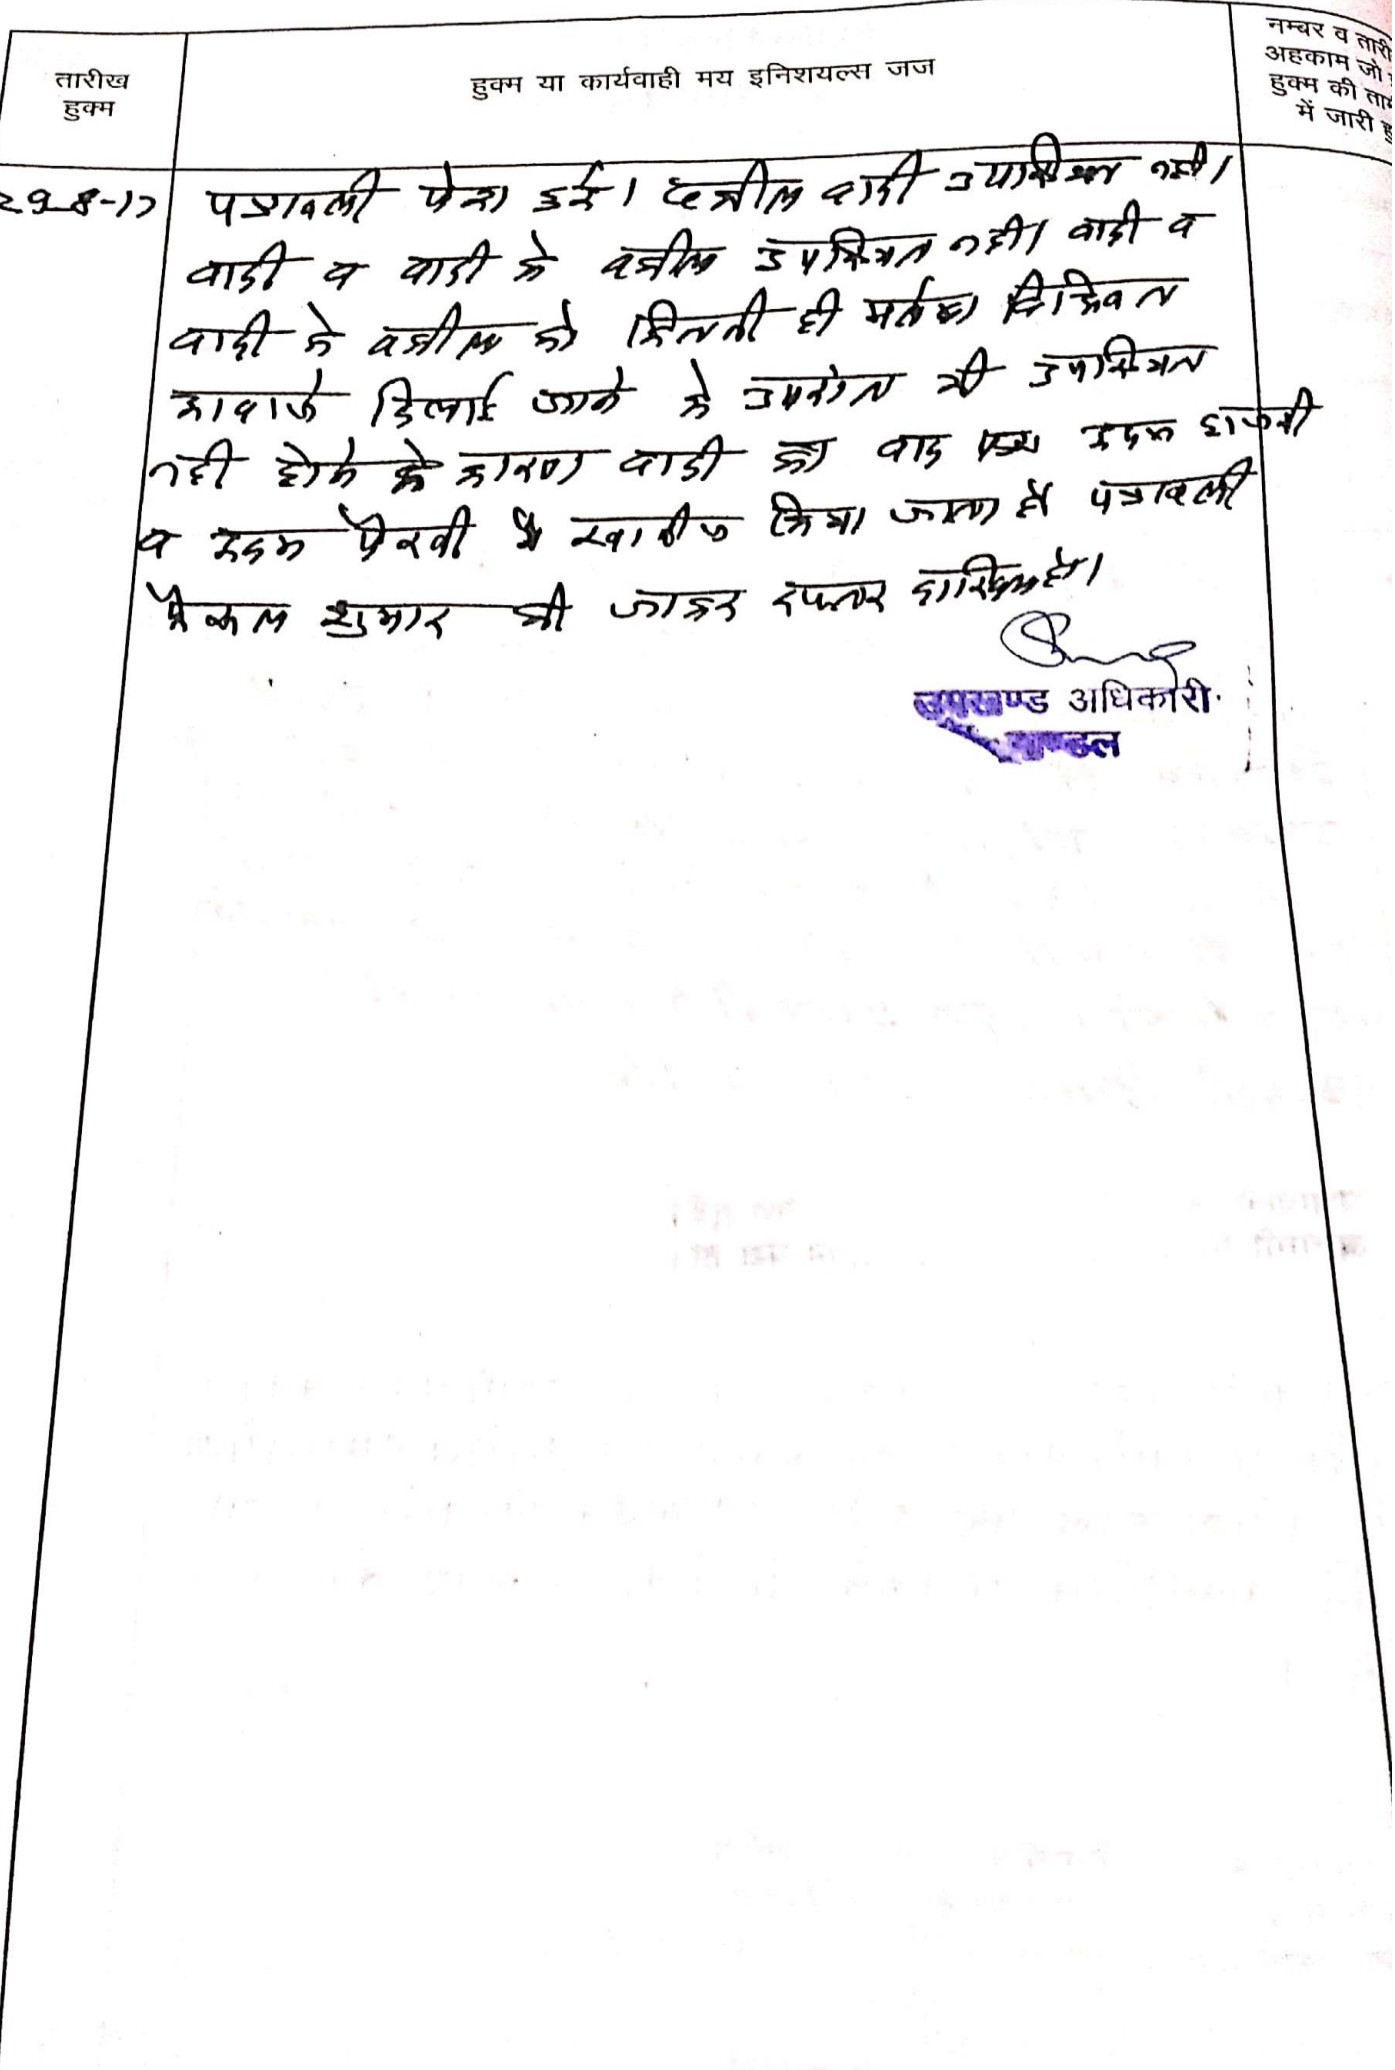 तारीख
हुक्म
हुक्म या कार्यवाही मय इनिशयल्स जज
नम्बर व तारी
अहकाम जो
हुक्म की ताम
में जारी हु
29-8-17 पत्रावली पेश हुई। वकील वादी उपस्थित नही।
वादी व वादी के वकील उपस्थित नही। वादी व
वादी के वकील को कितनी ही मर्तबा
आवाजे दिलाई जाने के उपरांत भी उपस्थित
नही होने के कारण वादी का वाद पत्र अदम हाजरी
व अदम पैरवी मे खारीज किया जाता है पत्रावली
फैसल शुमार की जाकर दफ्तर दाखिल हो।
उपखण्ड अधिकारी
माण्डल